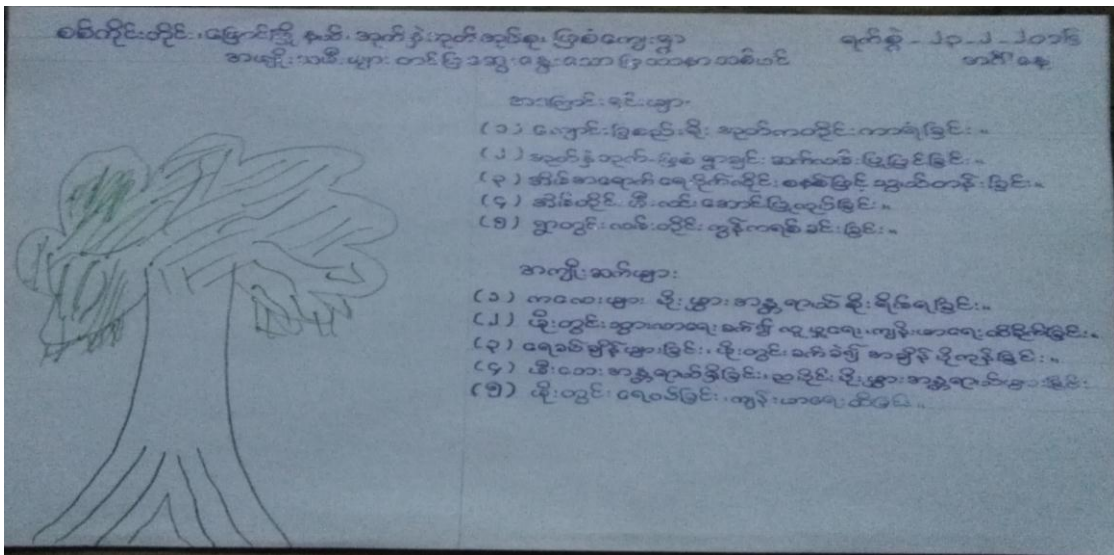 စစ်ကိုင်းတိုင်း၊ မြောင်မြို့နယ်၊ အုတ်နဲဘုတ်အုပ်စု၊ ဖြူစံကျေးရွာ
ရက်စွဲ - ၂၃-၂-၂၀၁၆
အမျိုးသမီးများ တင်ပြဆွေးနွေးသော ပြဿနာသစ်ပင်
အင်္ဂါနေ့
အကြောင်းရင်းများ
(၁) ကျောင်းခြံစည်းရိုး အုတ်ကတိုင်းကာရံခြင်း။
(၂) ရွာချင်းဆက်လမ်း ပြုပြင်ခြင်း။
(၃) အိမ်အရောက် ရေပိုက်လိုင်း စနစ်ဖြင့် သွယ်တန်းခြင်း။
(၄) အိမ်တိုင် မီးလင်းအောင် ပြုလုပ်ခြင်း။
(၅) ရွာတွင်းလမ်းတိုင်း ကွန်ကရစ်ခင်းခြင်း။
အကျိုးဆက်များ
(၁) ကလေးများ ပိုးမွှားအန္တရာယ် စိုးရိမ်ရခြင်း။
(၂) မိုးတွင်းသွားလာရေးခက်၍ လူမှုရေး၊ ကျန်းမာရေး ထိခိုက်ခြင်း။
(၃) ရေခပ်ချိန်များခြင်း၊ မိုးတွင်းခက်ခဲ၍ အချိန်ပိုကုန်ခြင်း။
(၄) မီးဘေးအန္တရာယ်ရှိခြင်း၊ ညပိုင်းပိုးမွှားအန္တရာယ်များခြင်း
(၅) မိုးတွင်း ရေဝပ်ခြင်း၊ ကျန်းမာရေး